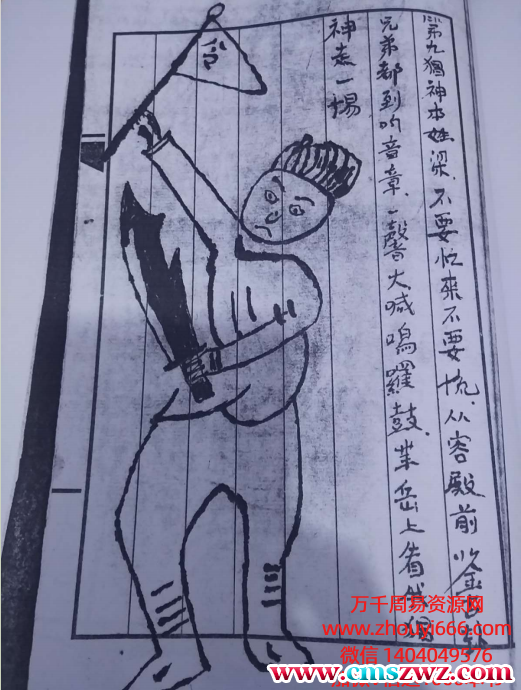 第九猖神本姓梁.不要忙来不要慌.从容殿前
兄弟都到吶音章.一声大喊鳴羅鼓.岳上看
神走一場
令
万千周易资源网
www.zhouyi666.com
微信 1404049576
www.cmswz.com